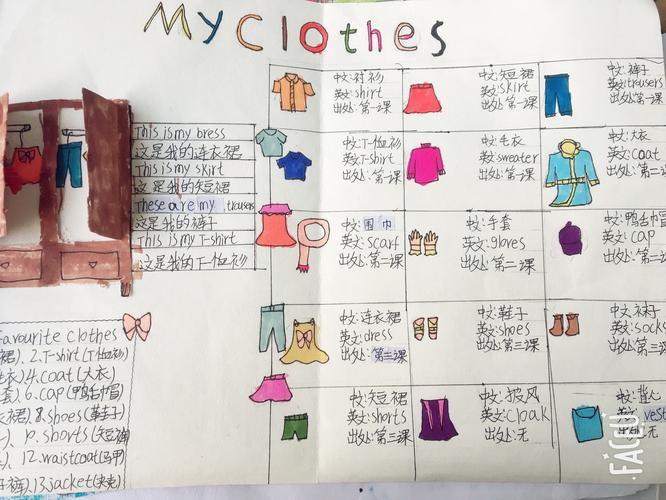 My clothes
This is my bress
这是我的连衣裙
This is my skirt
这是我的短裙
These are my trousers
这是我的裤子
This is my T-shirt
这是我的T-恤衫
中文:衬衫
英文:shirt
出处:第一课
中文:短裙
英文:skirt
出处:第一课
中文:裤子
英文:trousers
出处:第一课
中文:T-恤衫
英文:T-shirt
出处:第一课
中文:毛衣
英文:sweater
出处:第二课
中文:大衣
英文:coat
出处:第二课
中文:围巾
英文:scarf
出处:第二课
中文:手套
英文:gloves
出处:第二课
中文:鸭舌帽
英文:cap
出处:第二课
中文:连衣裙
英文:dress
出处:第三课
中文:鞋子
英文:shoes
出处:第三课
中文:袜子
英文:sock
出处:第三课
中文:短裙
英文:shorts
出处:第三课
中文:披风
英文:cloak
出处:无
中文:背心
英文:vest
出处:无
Favourite clothes
裙).2.T-shirt(T恤衫)
衣)4.coat(大衣)
套).6.cap(鸭舌帽)
衣裙).8.shoes(鞋子)
shorts(短裤
).12.waistcoat(马甲)
裤).13jacket(夹克)
FACEU